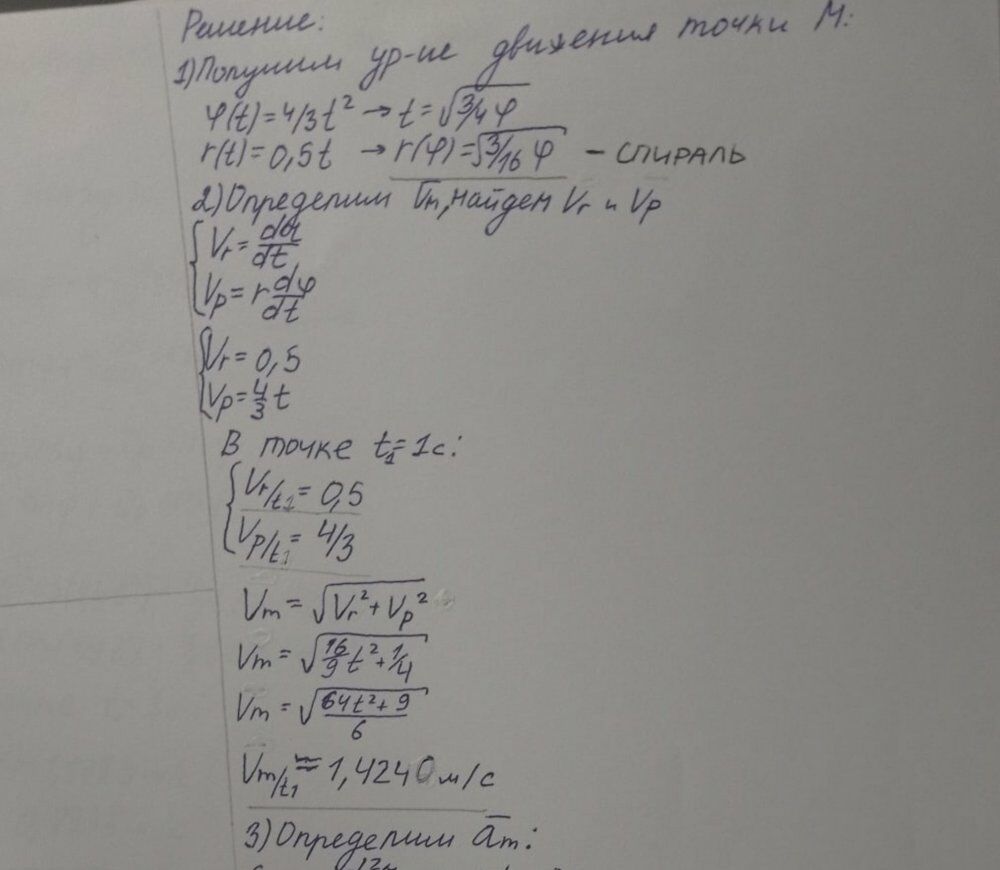 Решение:
1) Получим ур-ие движения точки М:
φ(t)=4/3t² → t=√3/4φ
r(t)=0,5t → r(φ)=√3/16φ - СПИРАЛЬ
2) Определим V̅m, найдем Vr и Vp
{Vr=dr/dt
{Vp=r dφ/dt
{Vr=0,5
{Vp=4/3 t
В точке t₁=1с:
{Vr/t₁=0,5
{Vp/t₁=4/3
Vm=√Vr²+Vp²
Vm=√16/9t²+1/4
Vm=√64t²+9/6
Vm/t₁≈1,4240 м/с
3) Определим a̅m: